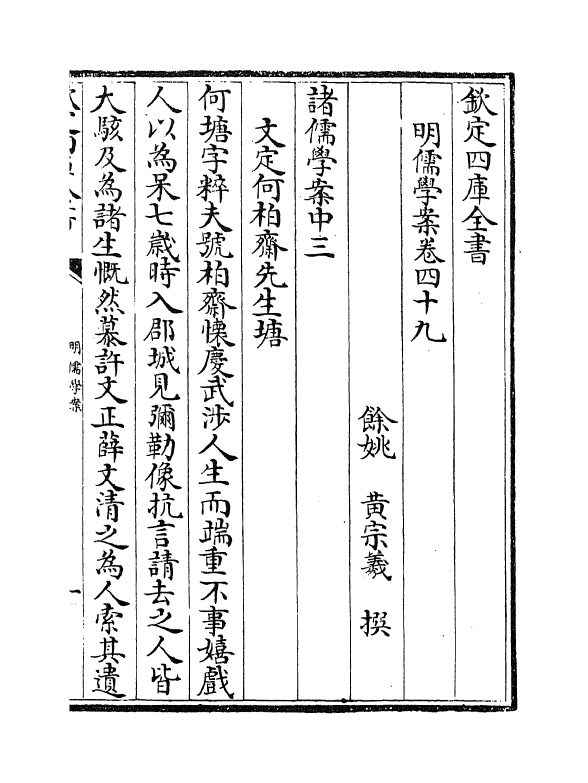 欽定四庫全書
明儒學案卷四十九
餘姚 黄宗羲 撰
諸儒學案中三
文定何柏齋先生塘
何塘字粹夫號柏齋懐慶武渉人生而端重不事嬉戲
人以為呆七嵗時入郡城見彌勒像抗言請去之人皆
大駭及為諸生慨然慕許文正薛文清之為人索其遺
明儒學案
一